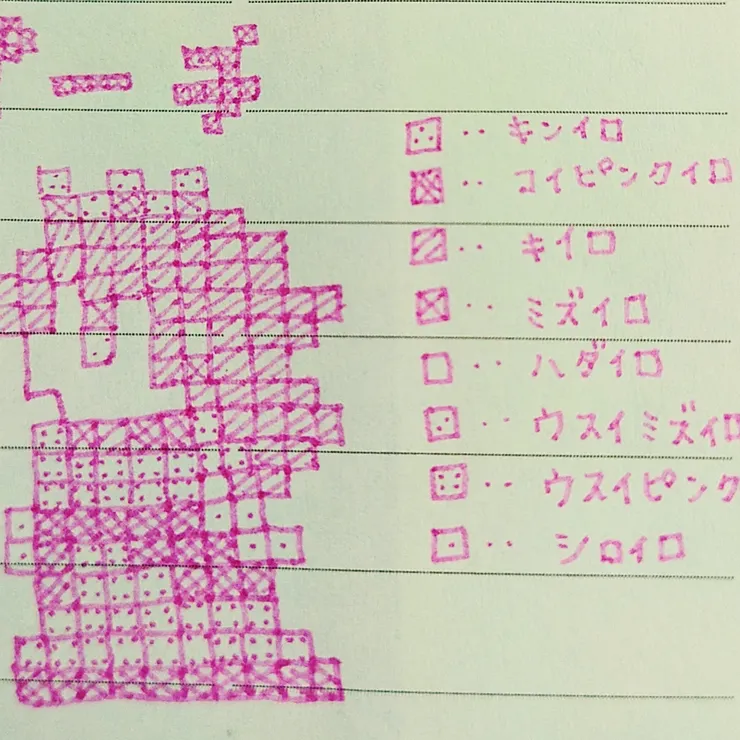 ーチ
‥キンイロ
‥コイピンクイロ
‥キイロ
‥ミズイロ
‥ハダイロ
‥ウスイミズイロ
‥ウスイピンク
‥シロイロ